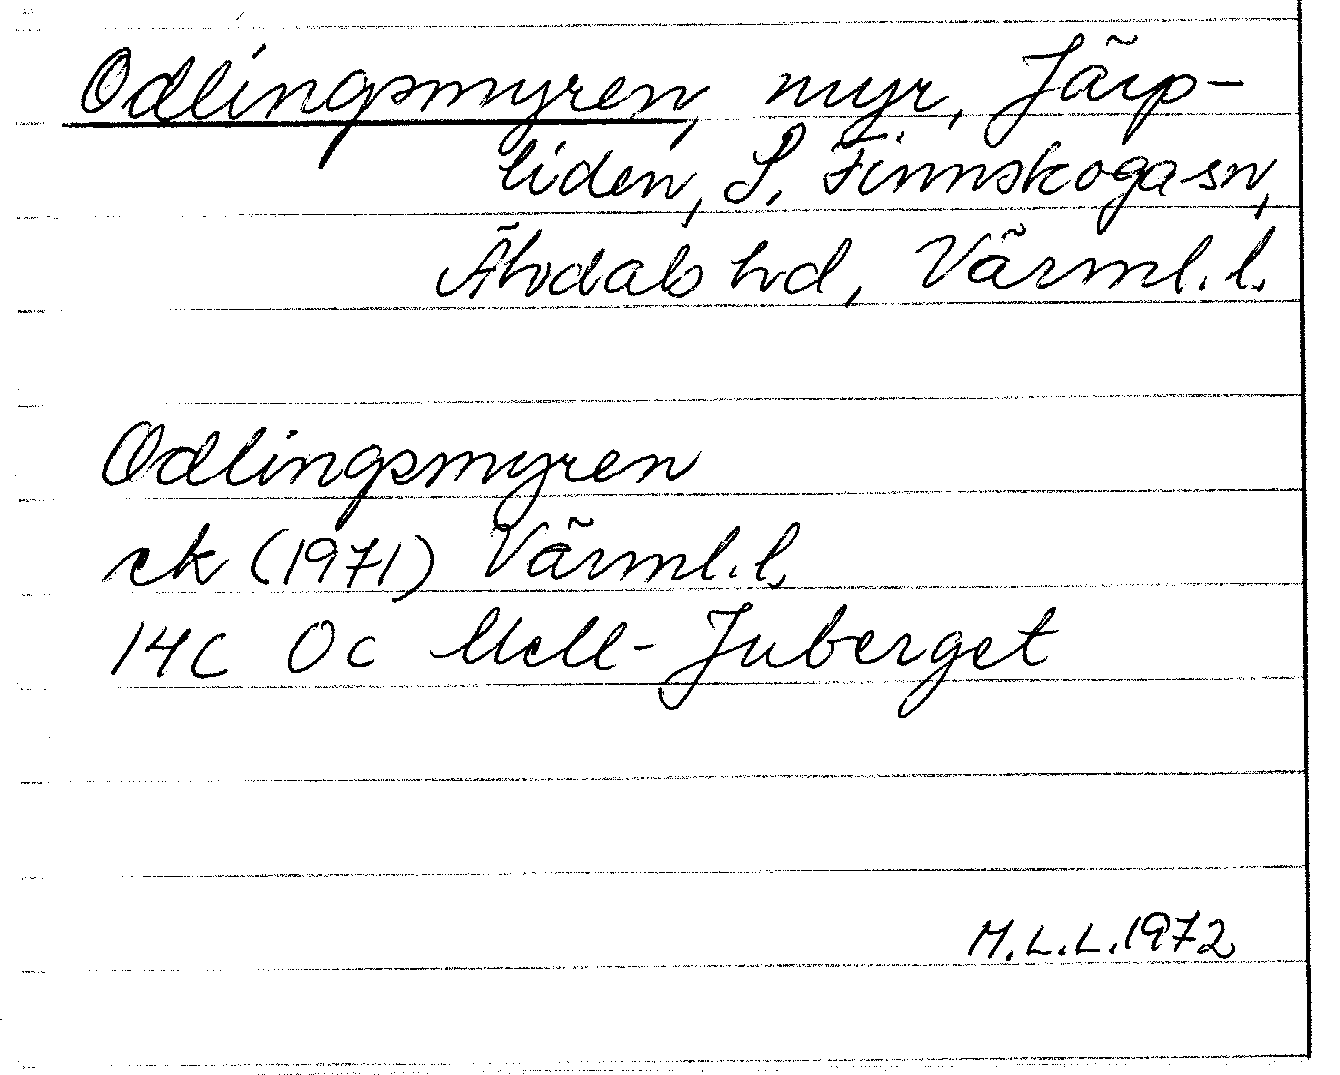 Odlingsmyren, myr, Järp-
liden, S. Finnskoga sn,
Älvdals hd, Värml. l.
Odlingsmyren
ek (1971) Värml. l.
14C 0c Mell-Juberget
M.L.L. 1972